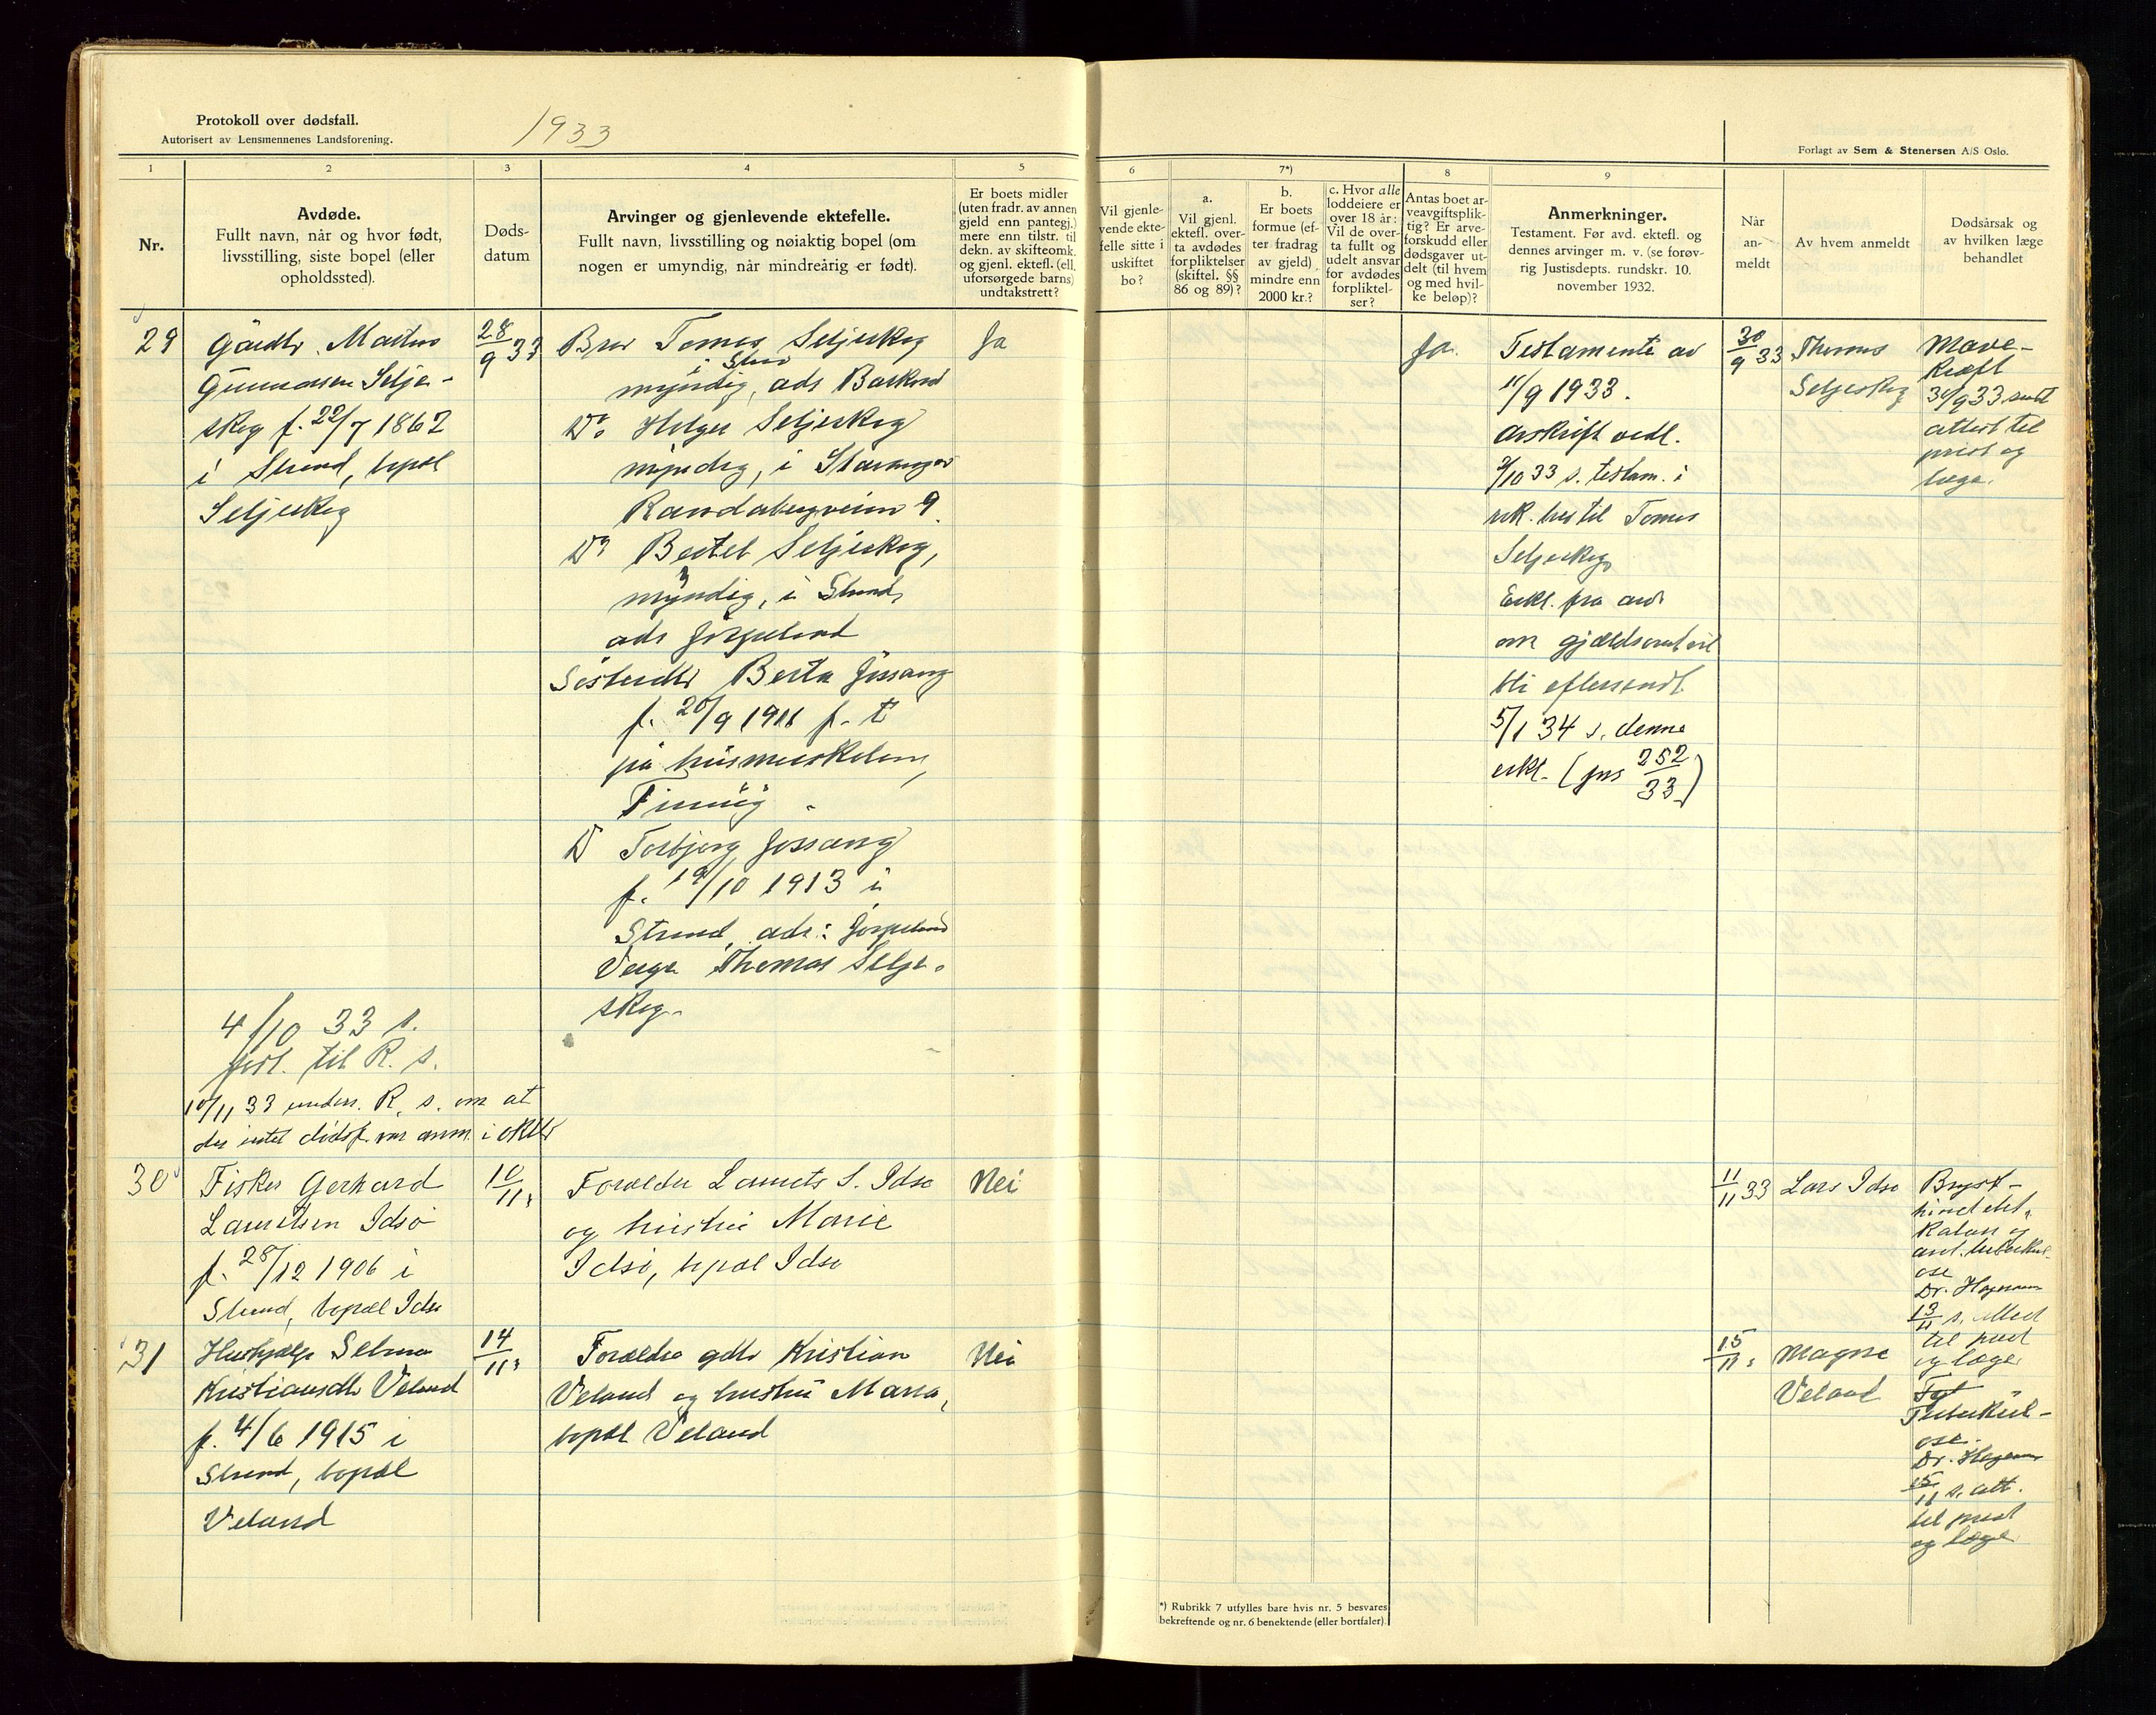 Protokoll over dødsfall.
Autorisert av Lensmennenes Landsforening.
1933
Forlagt av Sem & Stenersen A/S Oslo.
1
2
3
4
5
6
7*)
8
9
Nr.
Avdøde.
Fullt navn, når og hvor født,
livsstilling, siste bopel (eller
opholdssted).
Døds-
datum
Arvinger og gjenlevende ektefelle.
Fullt navn, livsstilling og nøiaktig bopel (om
nogen er umyndig, når mindreårig er født).
Er boets midler
(uten fradr. av annen
gjeld enn pantegj.)
mere enn tilstr. til
dekn. av skifteomk.
og gjenl. ektefl. (ell.
uforsørgede barns)
undtakstrett?
Vil gjenle-
vende ekte-
felle sitte i
uskiftet
bo?
a.
Vil gjenl.
ektefl. over-
ta avdødes
forpliktelser
(skiftel. §§
86 og 89)?
b.
Er boets
formue (ef-
ter fradrag
av gjeld)
mindre enn
2000 kr.?
c. Hvor alle
loddeiere er
over 18 år:
Vil de over-
ta fullt og
udelt ansvar
for avdødes
forpliktel-
ser?
Antas boet ar-
veavgiftsplik-
tig? Er arve-
forskudd eller
dødsgaver ut-
delt (til hvem
og med hvil-
ke beløp)?
Anmerkninger.
Testament. Før avd. ektefl. og
dennes arvinger m. v. (se forøv-
rig Justisdepts. rundskr. 10.
november 1932.
Når
an-
meldt
Av hvem anmeldt
Dødsårsak og
av hvilken læge
behandlet
29
Gårdbr.
Gunnarsen Selje-
skog f. 22/7 1862
i Strand, bopæl
Seljeskog
28/9 33
Bror Tomas Seljeskog
i Strand
myndig, adr
Do Helger Seljeskog
myndig, i Stavanger
Randabergveien 9
Do Bertel Seljeskog,
myndig, i Strand,
adr Jørpeland
Søsterdtr Berta Jøssang
f. 20/9 1916 p. t
på husmorskolen,
Finnøy
D Torbjørg Jøssang
f. 19/10 1913 i
Strand, adr: Jørpeland
Verge Thomas Selje-
skog
Ja
Ja.
Testamente av
11/9 1933.
Avskrift vedl.
/10 33 s. testam. i
rek. brev til Tomas
Seljeskog
Erkl. fra arv.
om gjældsansvar vil
bli eftersendt.
5/1 34 s. denne
erkl. (jns 252/33)
30/9 33
Thomas
Seljeskog
Mave-
kræft
30/9 33 sendt
attest til
prest og
læge.
4/10 33 s.
til R. s.
10/11 33 underr. R. s. om at
der intet dødsf. var anm. i oktbr
30
Fisker Gerhard
Lauritsen Idsø
f. 28/12 1906 i
Strand, bopæl Idsø
10/11
Forældre Laurits S. Idsø
og hustru Marie
Idsø, bopæl Idsø
Nei
11/11 33
Lars Idsø
Bryst-
hinnebet.
Katarr og
tuberkul-
ose
Dr.
13/11 s. Med
til prest
og læge
31
Hushjælp Selma
Kristiansdtr Veland
f. 4/6 1915 i
Strand, bopæl
Veland
14/11
Forældre gdbr Kristian
Veland og hustru Maria,
bopæl Veland
Nei
15/11
Magne
Veland
Tuberkul-
ose.
Dr.
15/11 s. att.
til prest
og læge
*) Rubrikk 7 utfylles bare hvis nr. 5 besvares
bekreftende og nr. 6 benektende (eller bortfaler).